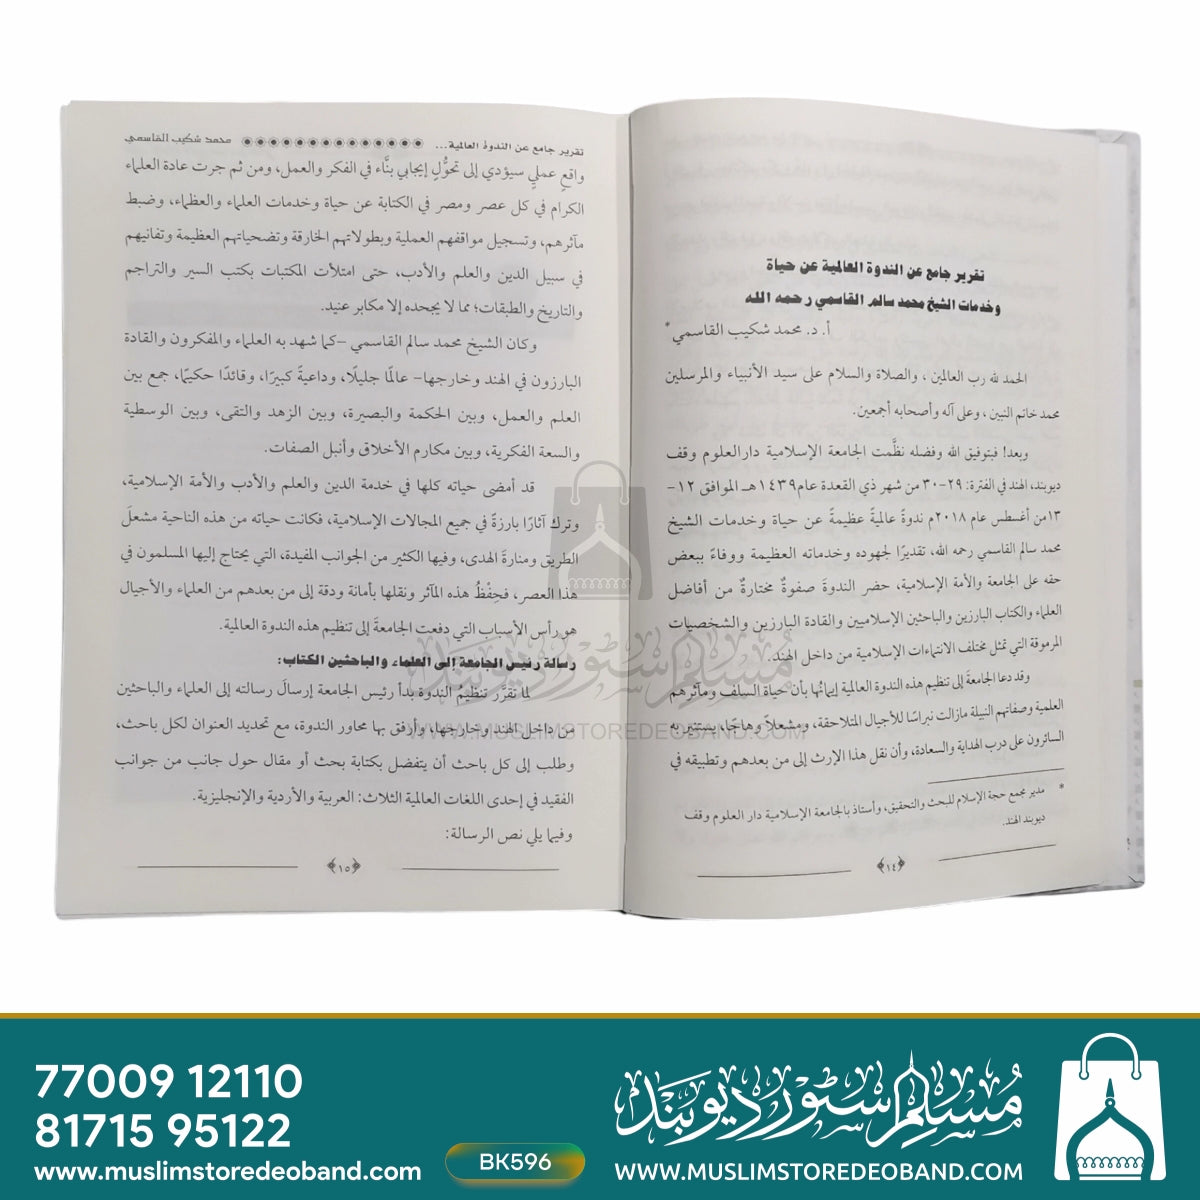 تقرير جامع عن الندوة العالمية عن حياة
وخدمات الشيخ محمد سالم القاسمي رحمه الله
أ. د. محمد شكيب القاسمي*
الحمد لله رب العالمين، والصلاة والسلام على سيد الأنبياء والمرسلين
محمد خاتم النبين، وعلى آله وأصحابه أجمعين.
وبعد! فبتوفيق الله وفضله نظَّمت الجامعة الإسلامية دارالعلوم وقف
ديوبند، الهند في الفترة: ٢٩-٣٠ من شهر ذي القعدة عام ١٤٣٩هـ الموافق ١٢-
١٣من أغسطس عام ٢٠١٨م ندوةً عالميةً عظيمةً عن حياة وخدمات الشيخ
محمد سالم القاسمي رحمه الله، تقديرًا لجهوده وخدماته العظيمة ووفاءً ببعض
حقه على الجامعة والأمة الإسلامية، حضر الندوةَ صفوةٌ مختارةٌ من أفاضل
العلماء والكتاب البارزين والباحثين الإسلاميين والقادة البارزين والشخصيات
المرموقة التي تمثل مختلف الانتماءات الإسلامية من داخل الهند.
وقد دعا الجامعةَ إلى تنظيم هذه الندوة العالمية إيمانُها بأن حياة السلف ومآثرهم
العلمية وصفاتهم النبيلة مازالت نبراسًا للأجيال المتلاحقة، ومشعلاً وهاجًا، يستنير به
السائرون على درب الهداية والسعادة، وأن نقل هذا الإرث إلى من بعدهم وتطبيقه في
* مدير مجمع حجة الإسلام للبحث والتحقيق، وأستاذ بالجامعة الإسلامية دار العلوم وقف
ديوبند الهند.
﴿١٤﴾
تقرير جامع عن الندوة العالمية... محمد شكيب القاسمي
واقعٍ عمليٍ سيؤدي إلى تحوُّلٍ إيجابي بنَّاء في الفكر والعمل، ومن ثم جرت عادة العلماء
الكرام في كل عصر ومصر في الكتابة عن حياة وخدمات العلماء والعظماء، وضبط
مآثرهم، وتسجيل مواقفهم العملية وبطولاتهم الخارقة وتضحياتهم العظيمة وتفانيهم
في سبيل الدين والعلم والأدب، حتى امتلأت المكتبات بكتب السير والتراجم
والتاريخ والطبقات؛ مما لا يجحده إلا مكابر عنيد.
وكان الشيخ محمد سالم القاسمي –كما شهد به العلماء والمفكرون والقادة
البارزون في الهند وخارجها– عالمًا جليلًا، وداعيةً كبيرًا، وقائدًا حكيمًا، جمع بين
العلم والعمل، وبين الحكمة والبصيرة، وبين الزهد والتقى، وبين الوسطية
والسعة الفكرية، وبين مكارم الأخلاق وأنبل الصفات.
قد أمضى حياته كلها في خدمة الدين والعلم والأدب والأمة الإسلامية،
وترك آثارًا بارزةً في جميع المجالات الإسلامية، فكانت حياته من هذه الناحية مشعلَ
الطريق ومنارةَ الهدى، وفيها الكثير من الجوانب المفيدة، التي يحتاج إليها المسلمون في
هذا العصر، فحِفْظُ هذه المآثر ونقلها بأمانة ودقة إلى من بعدهم من العلماء والأجيال
هو رأس الأسباب التي دفعت الجامعةَ إلى تنظيم هذه الندوة العالمية.
رسالة رئيس الجامعة إلى العلماء والباحثين الكتاب:
لما تقرَّر تنظيمُ الندوة بدأ رئيس الجامعة إرسالَ رسالته إلى العلماء والباحثين
من داخل الهند وخارجها، وأرفق بها محاور الندوة، مع تحديد العنوان لكل باحث،
وطلب إلى كل باحث أن يتفضل بكتابة بحث أو مقال حول جانب من جوانب
الفقيد في إحدى اللغات العالمية الثلاث: العربية والأردية والإنجليزية.
وفيما يلي نص الرسالة:
﴿١٥﴾
مُسلم سٹور دیوبند
WWW.MUSLIMSTOREDEOBAND.COM
77009 12110
81715 95122
www.muslimstoredeoband.com
BK596
مُسلم سٹور دیوبند
WWW.MUSLIMSTOREDEOBAND.COM